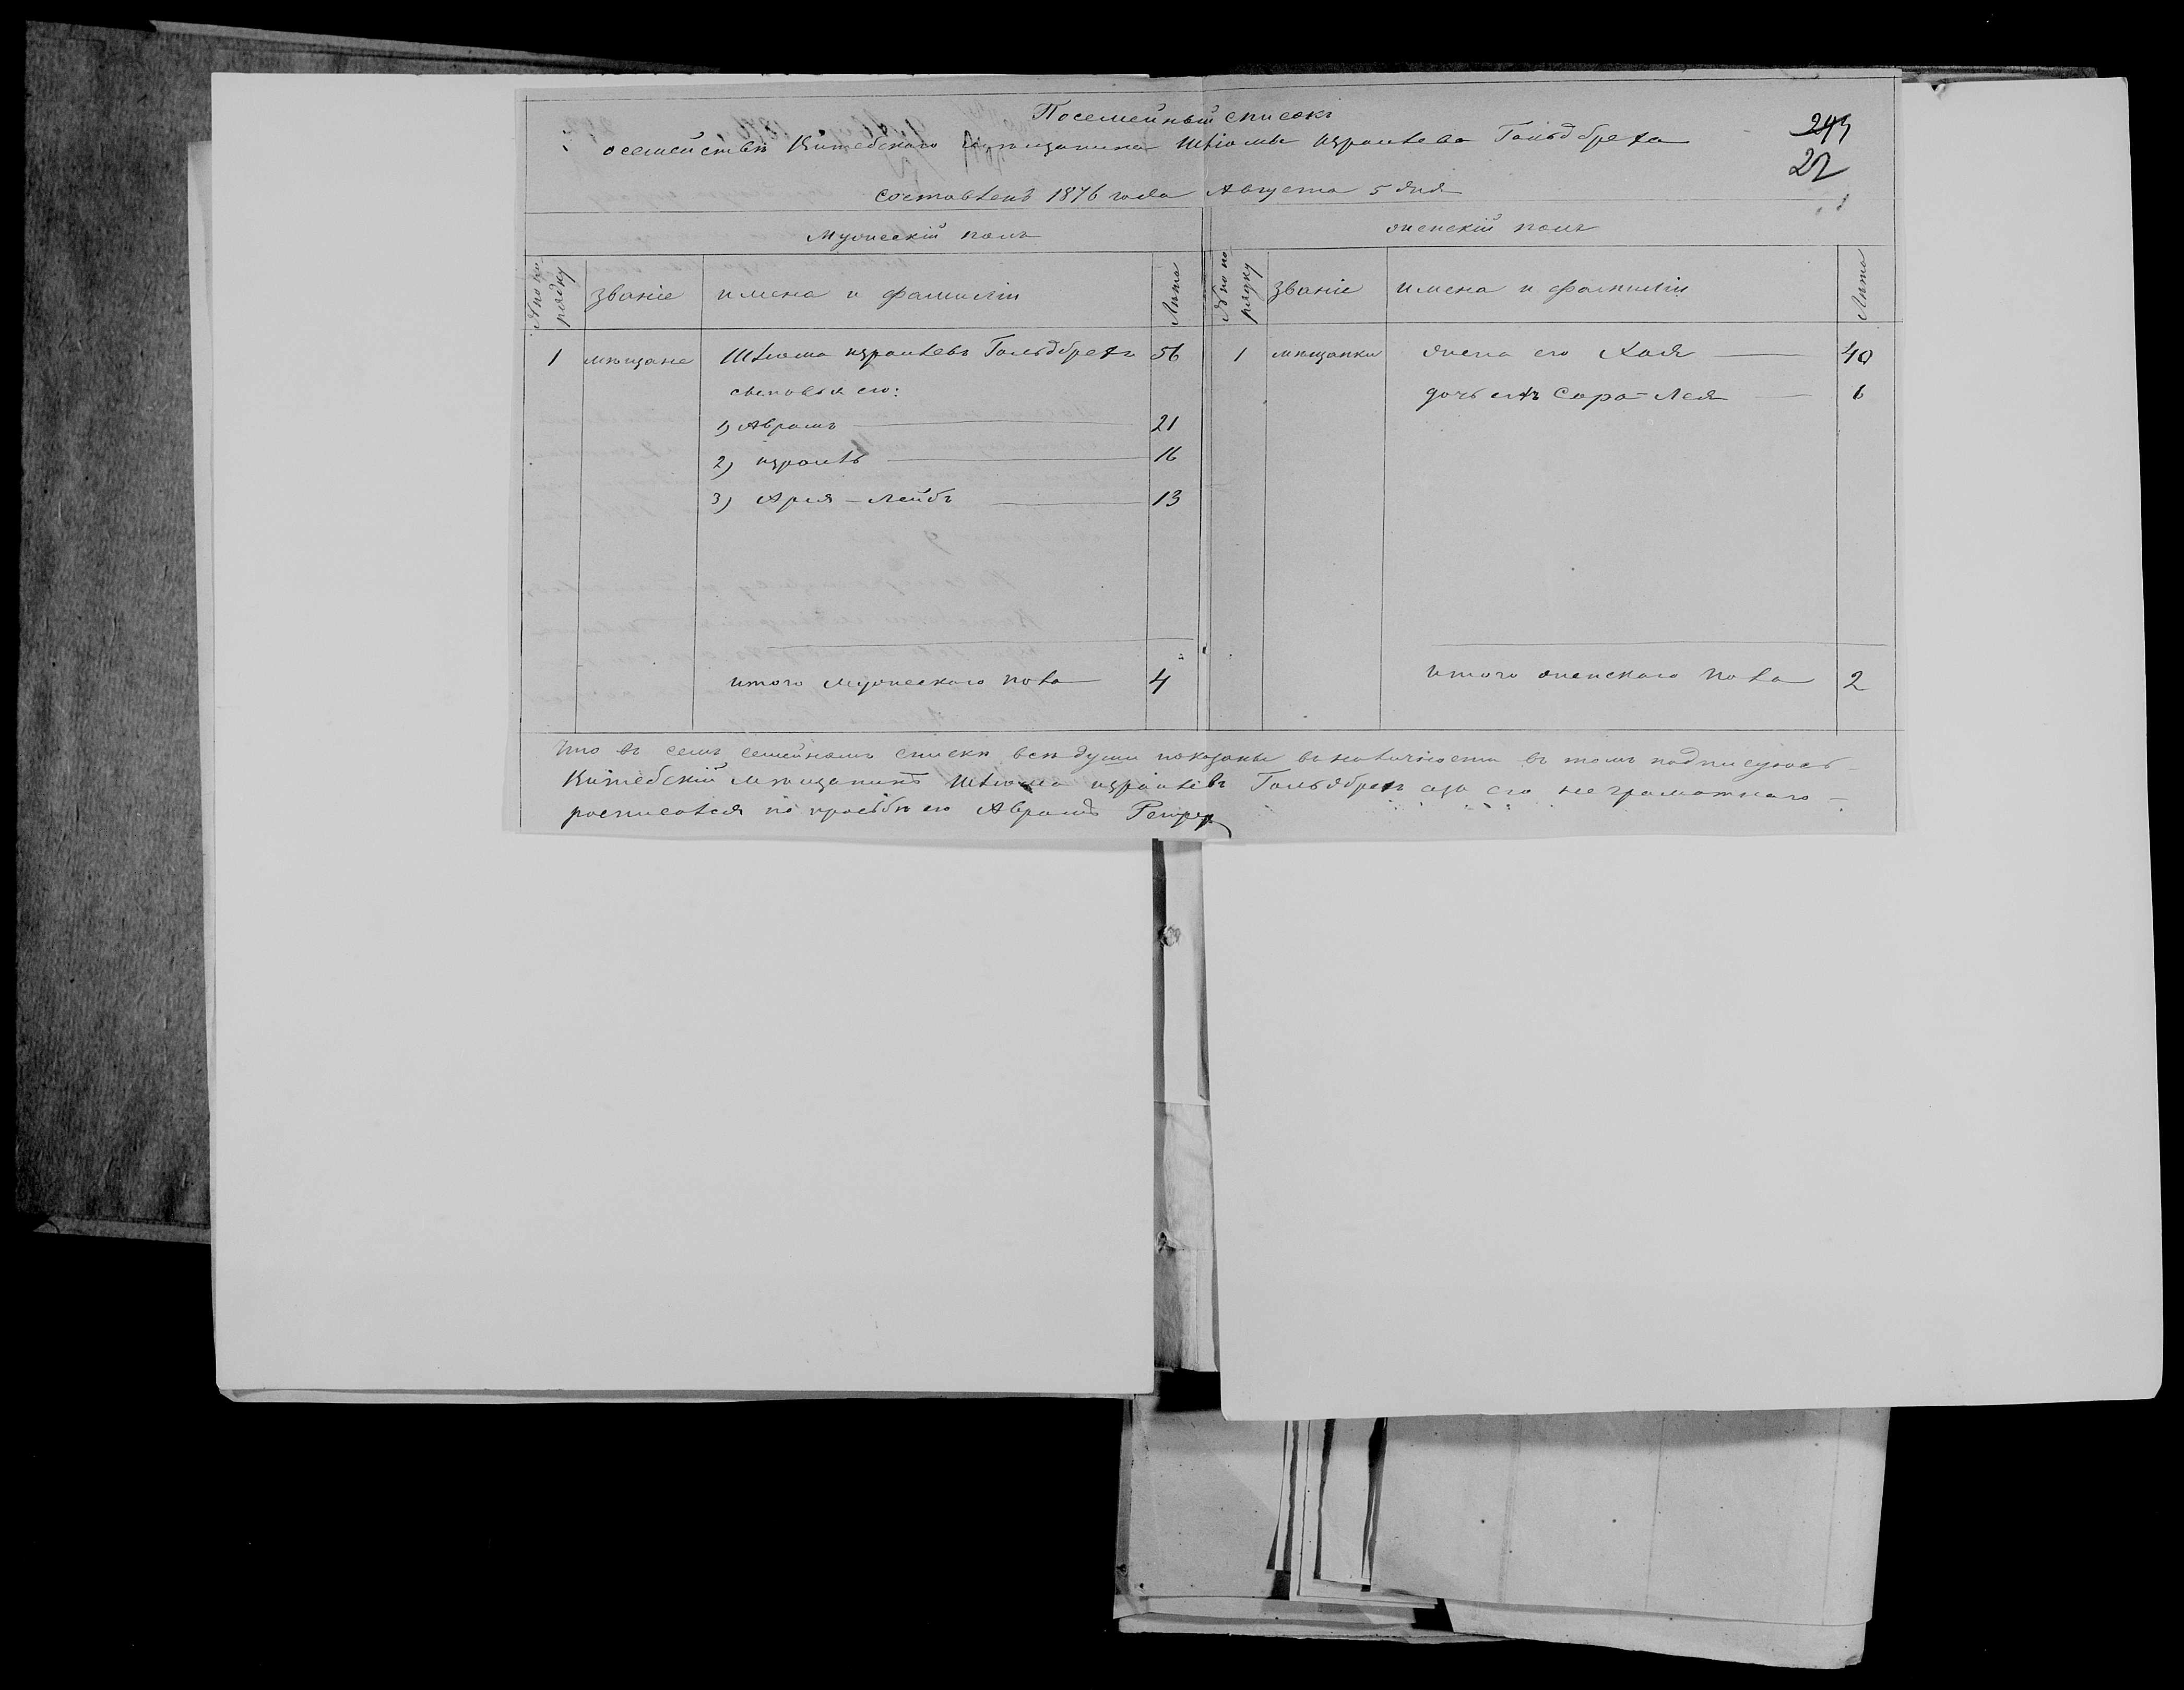 Посемейный списокъ
о семействѣ Витебскаго мѣщанина Шлiомы Израилева Гольдбреха
составленъ 1876 года Августа 5 дня
22
Мужескiй полъ
женскiй полъ
№ по порядку званiе имена и фамилiи Лѣта № по порядку званiе имена и фамилiи Лѣта
1 мѣщане Шлiома Израилевъ Гольдбрехъ 56 1 мѣщанки жена его Хая 40
сыновья его: дочь ихъ Сара-Лея 6
1) Абрамъ 21
2) Израиль 16
3) Арiя-Лейбъ 13
итого мужескаго пола 4 итого женскаго пола 2
Что въ семъ семейномъ списки всѣ души показаны въ наличности въ томъ подписуюсь
Витебскiй мѣщанинъ Шлiома Израилевъ Гольдбрехъ а за его неграмотнаго
росписался по прозьбѣ его Абрамъ